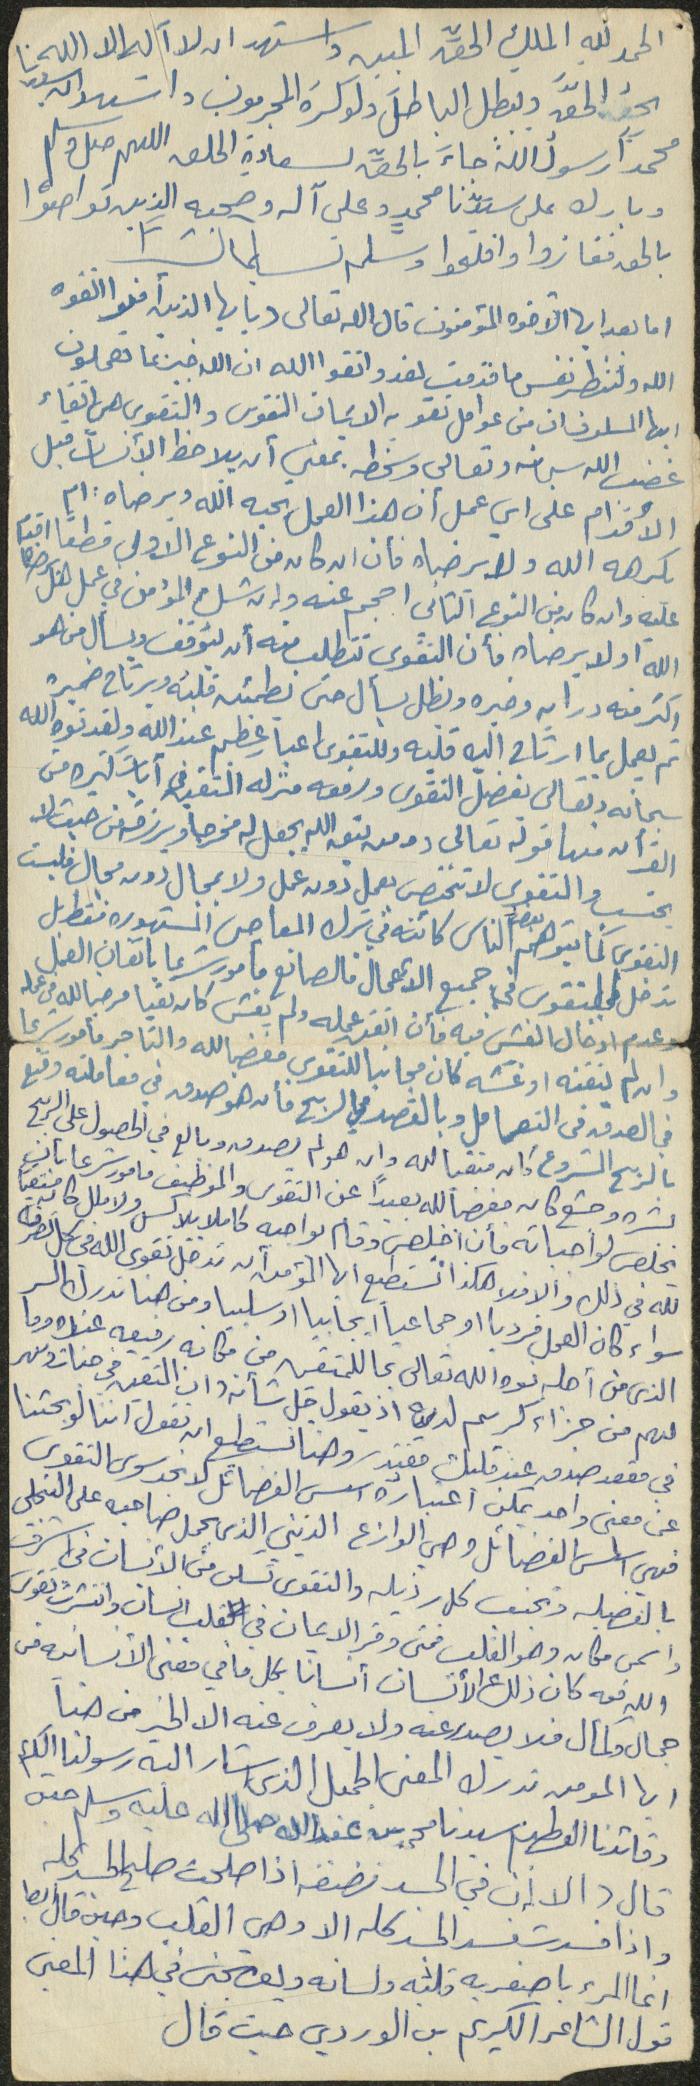 الحمد لله الملك الحق المبين واشهد ان لا آله الا الله
يحق الحقَّ ويبطل الباطلَ ولو كره المجرمون واشهد ان سيدنا
محمداً رسولُ اللهِ جاءَ بالحقِّ لسعادةِ الخلق اللهم صل وسلم
وبارك على سيدّنا محمدٍ وعلى آله وصحبه الذين تواصوْا
بالحق ففازوا وافلحوا وسلم تسليما كثيرا
اما بعد ايها الأخوه المؤمنون قال الله تعالى (يا يها الذين آمنوا اتقوه
الله ولتنظر نفس ما قدمت لغد واتقوا الله ان الله خبير بما تعملون
ايها المسلمون ان من عوامل تقويه الايمان التقوى والتقوى هي اتقاء
غضب الله سبحانه وتعالى وسخطه بمعنى أن يلاحظ الأنسان قبل
الأقدام على اي عمل أن هذا العمل يحبه الله ويرضاه: ام
يكرهه الله ولا يرضاه فأن ان كان من النوع الاولي قطعًا اقدم
عليه وان كان من النوع الثاني احجم عنه وان شك المؤمن في عمل هل يرضاه
الله او لا يرضاه فأن التقوى تتطلب منه أن يتوقف ويسأل من هو
اكثر منه درايه وخبره ويظل يسأل حتى يطمئن قلبه ويرتاح ضميره
ثم يعمل بما ارتاح اليه قلبه وللتقوى اعتبار عظيم عند الله ولقد نوه الله
سبحانه وتعالى بفضل التقوى ورفعه منزله المتقين في آيات كثيره من
القرآن منها قوله تعالى (ومن يتق الله يجعل له مخرجا ويرزقه من حيث لا
يحتسب) والتقوى لا تختص بعمل دون عمل ولا بمجال دون مجال فليست
التقوى كما يتوهم بعض الناس كائنه في ترك المعاصي المشهوره فقط بل
تدخل التقوى في جميع الاعمال فالصانع مأمور شرعا باتقان العمل
وعدم ادخال الغش فيه فأن اتقن عمله ولم يغش كان تقيا مرضيا لله في عمله
وان لم يتقنه او غشه كان مجانبا للتقوى مغضبا لله والتاجر مأمور شرعا
في الصدق في التعامل وبالقصد في الربح فأن هو صدق في معاملته وقنع
بالربح المشروع كان متقيا لله وان هو لم يصدق وبالغ في الحصول على الربح
بشره وجشع كان مغضبا لله بعيداً عن التقوى والموظيف مأمور شرعا بان
يخلص لواجباته فأن اخلص وقام بواجبه كاملا بلا كسل ولا ملل كان متقيا
لله في ذلك والا فلا هكذا تستطيع ايها المؤمن أن تدخل تقوى الله في كل تصرفاتك
سواء كان العمل فرديا او جماعياً ايجابيا او سلبيا ومن هنا ندرك السر
الذي من أجله نوه الله تعالى بما للمتقين من مكانه رفيعه عنده وما
لهم من جزاء كريم لديه اذ يقول جل شأنه (ان المتقين في جنات ونهر
في مقعد صدق عند مليك مقتدر) وهنا نستطيع ان نقول اننا لو بحثنا
عن معنى واحد يمكن اعتباره اسس الفضائل لا نجد سوى التقوى
فهي اسس الفضائل وهي الوازع الديني الذي يحمل صاحبه على التحلي
بالفضيله وتجنب كل رذيله والتقوى تسكن من الأنسان في اشرف
واسمى مكان وهو القلب فمتى وقر الايمان في قلب انسان وانتشرت تقوى
الله فيه كان ذلك الأنسان أنسانا بكل ما في معنى الأنسانيه من
جمال وكمال فلا يصدر عنه ولا يعرف عنه الا الخير من هنا
ايها المومن ندرك المعنى الجميل الذي اشار اليه رسولنا الكريم
وقائدنا العظيم سيدنا محمد بن عبد الله صلى الله عليه وسلم حين
قال (الا إن في الجسد مضغه اذا صلحت صلح الجسد كله
واذا فسدت فسد الجسد كله الا وهي القلب وحين قال ايضا
انما المرء باصغريه قلبه ولسانه ويعجبني في هذا المعنى
قول الشاعر الكريم بن الوردي حيث قال